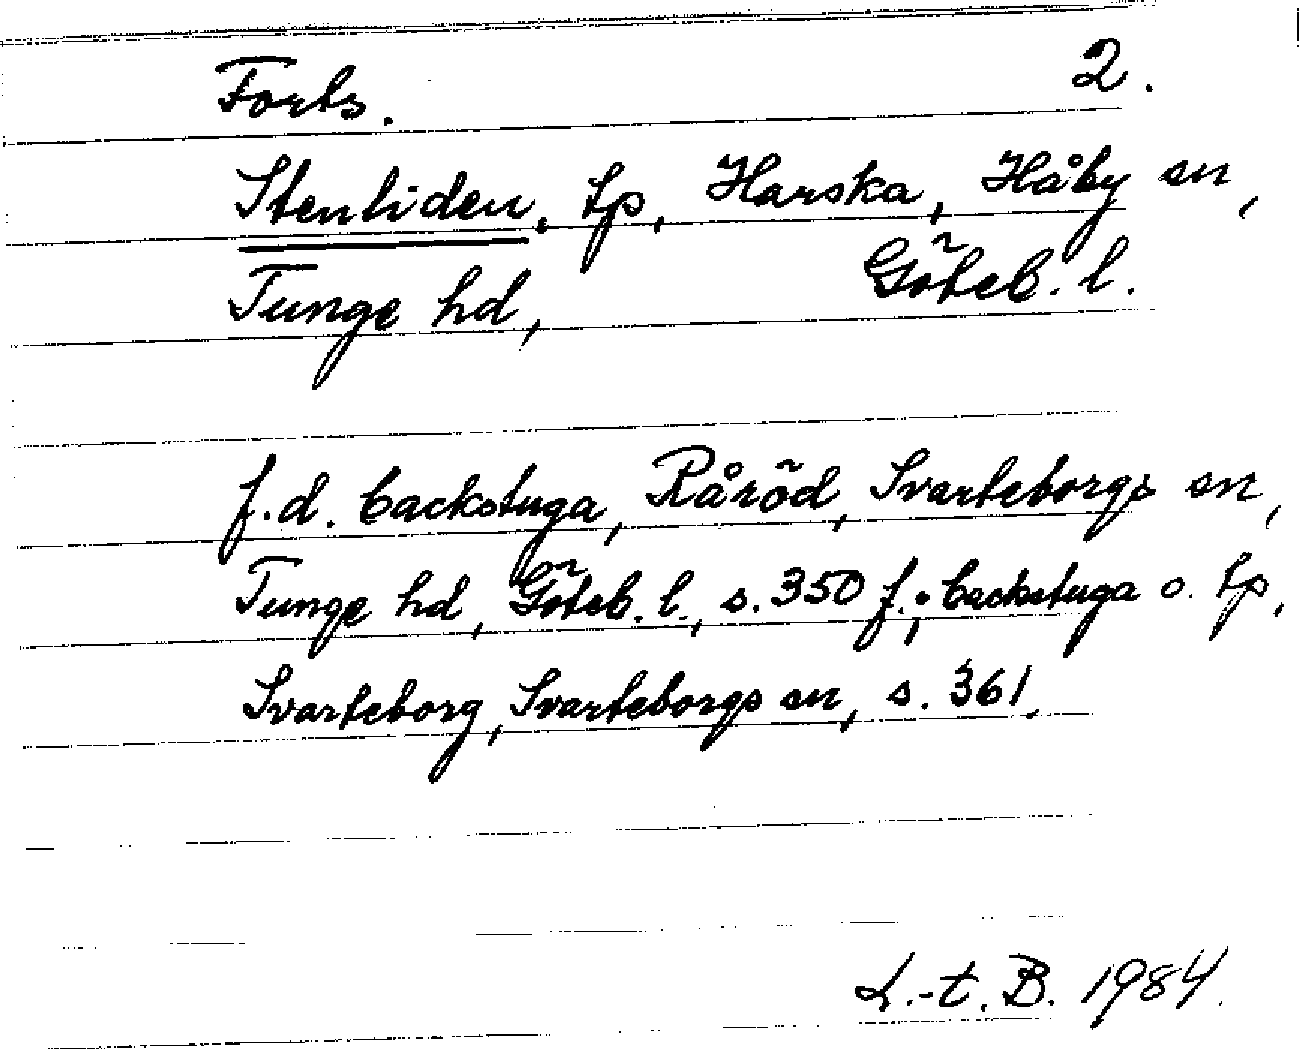 Forts. 2.
Stenliden, tp, Harska, Håby sn,
Tunge hd, Göteb. l.
f.d. backstuga, Råröd, Svarteborgs sn,
Tunge hd, Göteb. l., s. 350 f.; backstuga o. tp,
Svarteborg, Svarteborgs sn, s. 361.
L.-t. B. 1984.